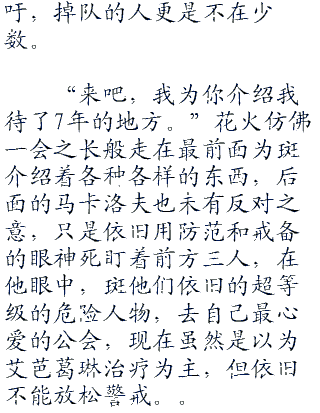 吁，掉队的人更是不在少
数。
“来吧，我为你介绍我
待了7年的地方。”花火仿佛
一会之长般走在最前面为斑
介绍着各种各样的东西，后
面的马卡洛夫也未有反对之
意，只是依旧用防范和戒备
的眼神死盯着前方三人，在
他眼中，斑他们依旧的超等
级的危险人物，去自己最心
爱的公会，现在虽然是以为
艾芭葛琳治疗为主，但依旧
不能放松警戒。。